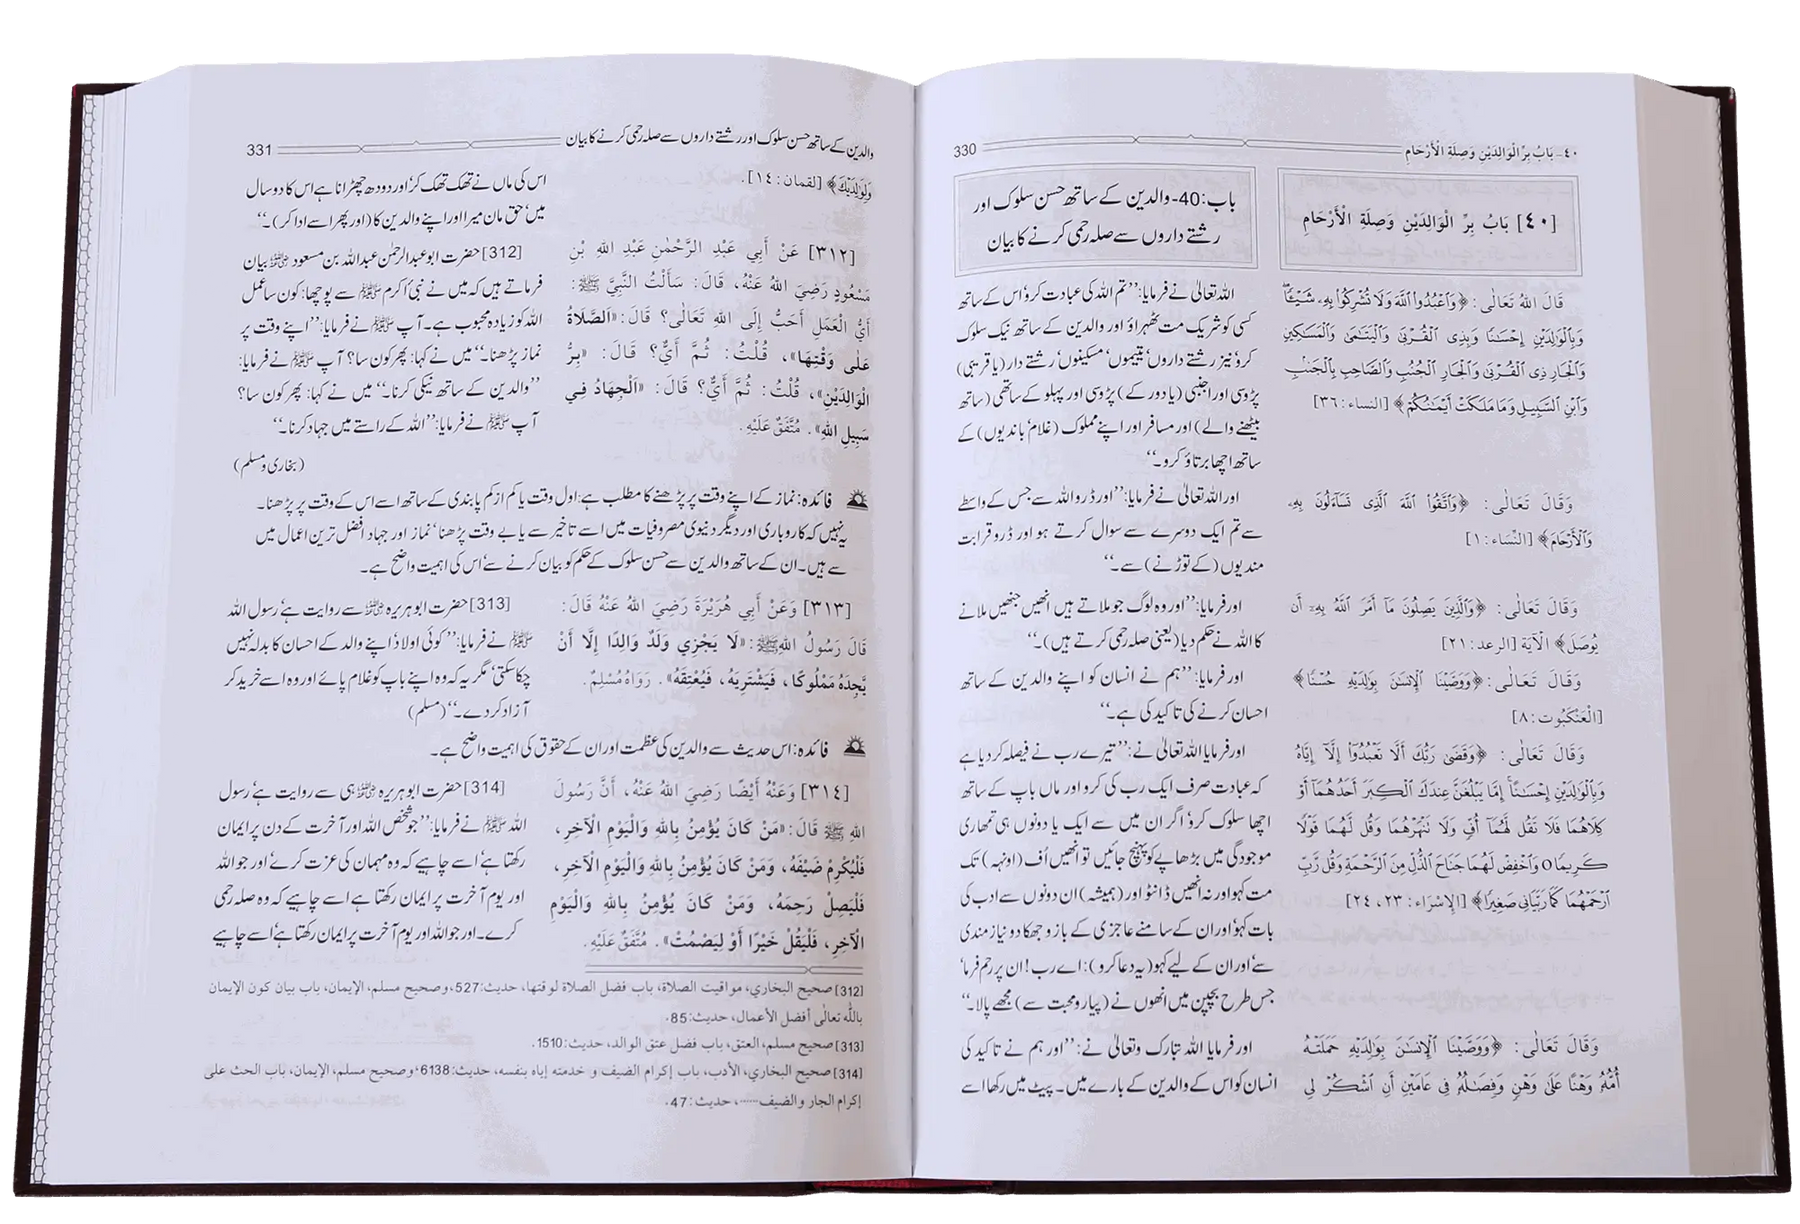 ٤٠- بَابُ بِرِّ الْوَالِدَيْنِ وَصِلَةِ الْأَرْحَامِ 330
[٤٠] بَابُ بِرِّ الْوَالِدَيْنِ وَصِلَةِ الْأَرْحَامِ
قَالَ اللهُ تَعَالٰى: ﴿وَاعْبُدُوا اللَّهَ وَلَا تُشْرِكُوا بِهِ شَيْئًا
وَبِالْوَالِدَيْنِ إِحْسَانًا وَبِذِي الْقُرْبَىٰ وَالْيَتَامَىٰ وَالْمَسَاكِينِ
وَالْجَارِ ذِي الْقُرْبَىٰ وَالْجَارِ الْجُنُبِ وَالصَّاحِبِ بِالْجَنْبِ
وَابْنِ السَّبِيلِ وَمَا مَلَكَتْ أَيْمَانُكُمْ﴾ [النساء: ٣٦]
وَقَالَ تَعَالٰى: ﴿وَاتَّقُوا اللَّهَ الَّذِي تَسَاءَلُونَ بِهِ
وَالْأَرْحَامَ﴾ [النِّسَاء: ١]
وَقَالَ تَعَالٰى: ﴿وَالَّذِينَ يَصِلُونَ مَا أَمَرَ اللَّهُ بِهِ أَن
يُوصَلَ﴾ الْآيَة [الرعد: ٢١]
وَقَالَ تَعَالٰى: ﴿وَوَصَّيْنَا الْإِنسَانَ بِوَالِدَيْهِ حُسْنًا﴾
[الْعَنْكَبُوت: ٨]
وَقَالَ تَعَالٰى: ﴿وَقَضَىٰ رَبُّكَ أَلَّا تَعْبُدُوا إِلَّا إِيَّاهُ
وَبِالْوَالِدَيْنِ إِحْسَانًا إِمَّا يَبْلُغَنَّ عِندَكَ الْكِبَرَ أَحَدُهُمَا أَوْ
كِلَاهُمَا فَلَا تَقُل لَّهُمَا أُفٍّ وَلَا تَنْهَرْهُمَا وَقُل لَّهُمَا قَوْلًا
كَرِيمًا ٥ وَاخْفِضْ لَهُمَا جَنَاحَ الذُّلِّ مِنَ الرَّحْمَةِ وَقُل رَّبِّ
ارْحَمْهُمَا كَمَا رَبَّيَانِي صَغِيرًا﴾ [الإِسْرَاء: ٢٣، ٢٤]
وَقَالَ تَعَالٰى: ﴿وَوَصَّيْنَا الْإِنسَانَ بِوَالِدَيْهِ حَمَلَتْهُ
أُمُّهُ وَهْنًا عَلَىٰ وَهْنٍ وَفِصَالُهُ فِي عَامَيْنِ أَنِ اشْكُرْ لِي
باب: 40- والدین کے ساتھ حسن سلوک اور
رشتے داروں سے صلہ رحمی کرنے کا بیان
اللہ تعالیٰ نے فرمایا: ’’تم اللہ کی عبادت کرو‘ اس کے ساتھ
کسی کو شریک مت ٹھہراؤ اور والدین کے ساتھ نیک سلوک
کرو‘ نیز رشتے داروں‘ یتیموں‘ مسکینوں‘ رشتے دار (یا قریبی)
پڑوسی اور اجنبی (یا دور کے) پڑوسی اور پہلو کے ساتھی (ساتھ
بیٹھنے والے) اور مسافر اور اپنے مملوک (غلام‘ باندیوں) کے
ساتھ اچھا برتاؤ کرو۔‘‘
اور اللہ تعالیٰ نے فرمایا: ’’اور ڈرو اللہ سے جس کے واسطے
سے تم ایک دوسرے سے سوال کرتے ہو اور ڈرو قرابت
مندیوں (کے توڑنے) سے۔‘‘
اور فرمایا: ’’اور وہ لوگ جو ملاتے ہیں انھیں جنھیں ملانے
کا اللہ نے حکم دیا (یعنی صلہ رحمی کرتے ہیں)۔‘‘
اور فرمایا: ’’ہم نے انسان کو اپنے والدین کے ساتھ
احسان کرنے کی تاکید کی ہے۔‘‘
اور فرمایا اللہ تعالیٰ نے: ’’تیرے رب نے فیصلہ کر دیا ہے
کہ عبادت صرف ایک رب کی کرو اور ماں باپ کے ساتھ
اچھا سلوک کرو‘ اگر ان میں سے ایک یا دونوں ہی تمھاری
موجودگی میں بڑھاپے کو پہنچ جائیں تو انھیں اُف (اونہہ) تک
مت کہو اور نہ انھیں ڈانٹو اور (ہمیشہ) ان دونوں سے ادب کی
بات کہو‘ اور ان کے سامنے عاجزی کے بازو جھکا دو نیازمندی
سے‘ اور ان کے لیے کہو (یہ دعا کرو): اے رب! ان پر رحم فرما‘
جس طرح بچپن میں انھوں نے (پیار و محبت سے) مجھے پالا۔‘‘
اور فرمایا اللہ تبارک وتعالیٰ نے: ’’اور ہم نے تاکید کی
انسان کو اس کے والدین کے بارے میں۔ پیٹ میں رکھا اسے
والدین کے ساتھ حسن سلوک اور رشتے داروں سے صلہ رحمی کرنے کا بیان 331
وَلِوَالِدَيْكَ﴾ [لقمان: ١٤].
[٣١٢] عَنْ أَبِي عَبْدِ الرَّحْمٰنِ عَبْدِ اللهِ بْنِ
مَسْعُودٍ رَضِيَ اللهُ عَنْهُ، قَالَ: سَأَلْتُ النَّبِيَّ ﷺ:
أَيُّ الْعَمَلِ أَحَبُّ إِلَى اللهِ تَعَالٰى؟ قَالَ: «اَلصَّلَاةُ
عَلٰى وَقْتِهَا»، قُلْتُ: ثُمَّ أَيٌّ؟ قَالَ: «بِرُّ
الْوَالِدَيْنِ»، قُلْتُ: ثُمَّ أَيٌّ؟ قَالَ: «اَلْجِهَادُ فِي
سَبِيلِ اللهِ». مُتَّفَقٌ عَلَيْهِ.
اس کی ماں نے تھک تھک کر اور دودھ چھڑانا ہے اس کا دو سال
میں‘ حق مان میرا اور اپنے والدین کا (اور پھر اسے ادا کر)۔‘‘
[312] حضرت ابوعبدالرحمٰن عبداللہ بن مسعود ؓ بیان
فرماتے ہیں کہ میں نے نبیٔ اکرم ﷺ سے پوچھا: کون سا عمل
اللہ کو زیادہ محبوب ہے۔ آپ ﷺ نے فرمایا: ’’اپنے وقت پر
نماز پڑھنا۔‘‘ میں نے کہا: پھر کون سا؟ آپ ﷺ نے فرمایا:
’’والدین کے ساتھ نیکی کرنا۔‘‘ میں نے کہا: پھر کون سا؟
آپ ﷺ نے فرمایا: ’’اللہ کے راستے میں جہاد کرنا۔‘‘
(بخاری و مسلم)
فائدہ: نماز کے اپنے وقت پر پڑھنے کا مطلب ہے: اول وقت یا کم از کم پابندی کے ساتھ اسے اس کے وقت پر پڑھنا۔
یہ نہیں کہ کاروباری اور دیگر دنیوی مصروفیات میں اسے تاخیر سے یا بے وقت پڑھنا‘ نماز اور جہاد افضل ترین اعمال میں
سے ہیں۔ ان کے ساتھ والدین سے حسن سلوک کے حکم کو بیان کرنے سے‘ اس کی اہمیت واضح ہے۔
[٣١٣] وَعَنْ أَبِي هُرَيْرَةَ رَضِيَ اللهُ عَنْهُ قَالَ:
قَالَ رَسُولُ اللهِ ﷺ: «لَا يَجْزِي وَلَدٌ وَالِدًا إِلَّا أَنْ
يَّجِدَهُ مَمْلُوكًا، فَيَشْتَرِيَهُ، فَيُعْتِقَهُ». رَوَاهُ مُسْلِمٌ.
[313] حضرت ابوہریرہ ؓ سے روایت ہے‘ رسول اللہ
ﷺ نے فرمایا: ’’کوئی اولاد‘ اپنے والد کے احسان کا بدلہ نہیں
چکا سکتی‘ مگر یہ کہ وہ اپنے باپ کو غلام پائے اور وہ اسے خرید کر
آزاد کر دے۔‘‘ (مسلم)
فائدہ: اس حدیث سے والدین کی عظمت اور ان کے حقوق کی اہمیت واضح ہے۔
[٣١٤] وَعَنْهُ أَيْضًا رَضِيَ اللهُ عَنْهُ، أَنَّ رَسُولَ
اللهِ ﷺ قَالَ: «مَنْ كَانَ يُؤْمِنُ بِاللهِ وَالْيَوْمِ الْآخِرِ،
فَلْيُكْرِمْ ضَيْفَهُ، وَمَنْ كَانَ يُؤْمِنُ بِاللهِ وَالْيَوْمِ الْآخِرِ،
فَلْيَصِلْ رَحِمَهُ، وَمَنْ كَانَ يُؤْمِنُ بِاللهِ وَالْيَوْمِ
الْآخِرِ، فَلْيَقُلْ خَيْرًا أَوْ لِيَصْمُتْ». مُتَّفَقٌ عَلَيْهِ.
[314] حضرت ابوہریرہ ؓ ہی سے روایت ہے‘ رسول
اللہ ﷺ نے فرمایا: ’’جو شخص اللہ اور آخرت کے دن پر ایمان
رکھتا ہے‘ اسے چاہیے کہ وہ مہمان کی عزت کرے‘ اور جو اللہ
اور یوم آخرت پر ایمان رکھتا ہے اسے چاہیے کہ وہ صلہ رحمی
کرے۔ اور جو اللہ اور یوم آخرت پر ایمان رکھتا ہے‘ اسے چاہیے
[312] صحيح البخاري، مواقيت الصلاة، باب فضل الصلاة لوقتها، حديث:527، وصحيح مسلم، الإيمان، باب بيان كون الإيمان
بالله تعالٰى أفضل الأعمال، حديث:85.
[313] صحيح مسلم، العتق، باب فضل عتق الوالد، حديث:1510.
[314] صحيح البخاري، الأدب، باب إكرام الضيف و خدمته إياه بنفسه، حديث:6138، وصحيح مسلم، الإيمان، باب الحث على
إكرام الجار والضيف......، حديث:47.